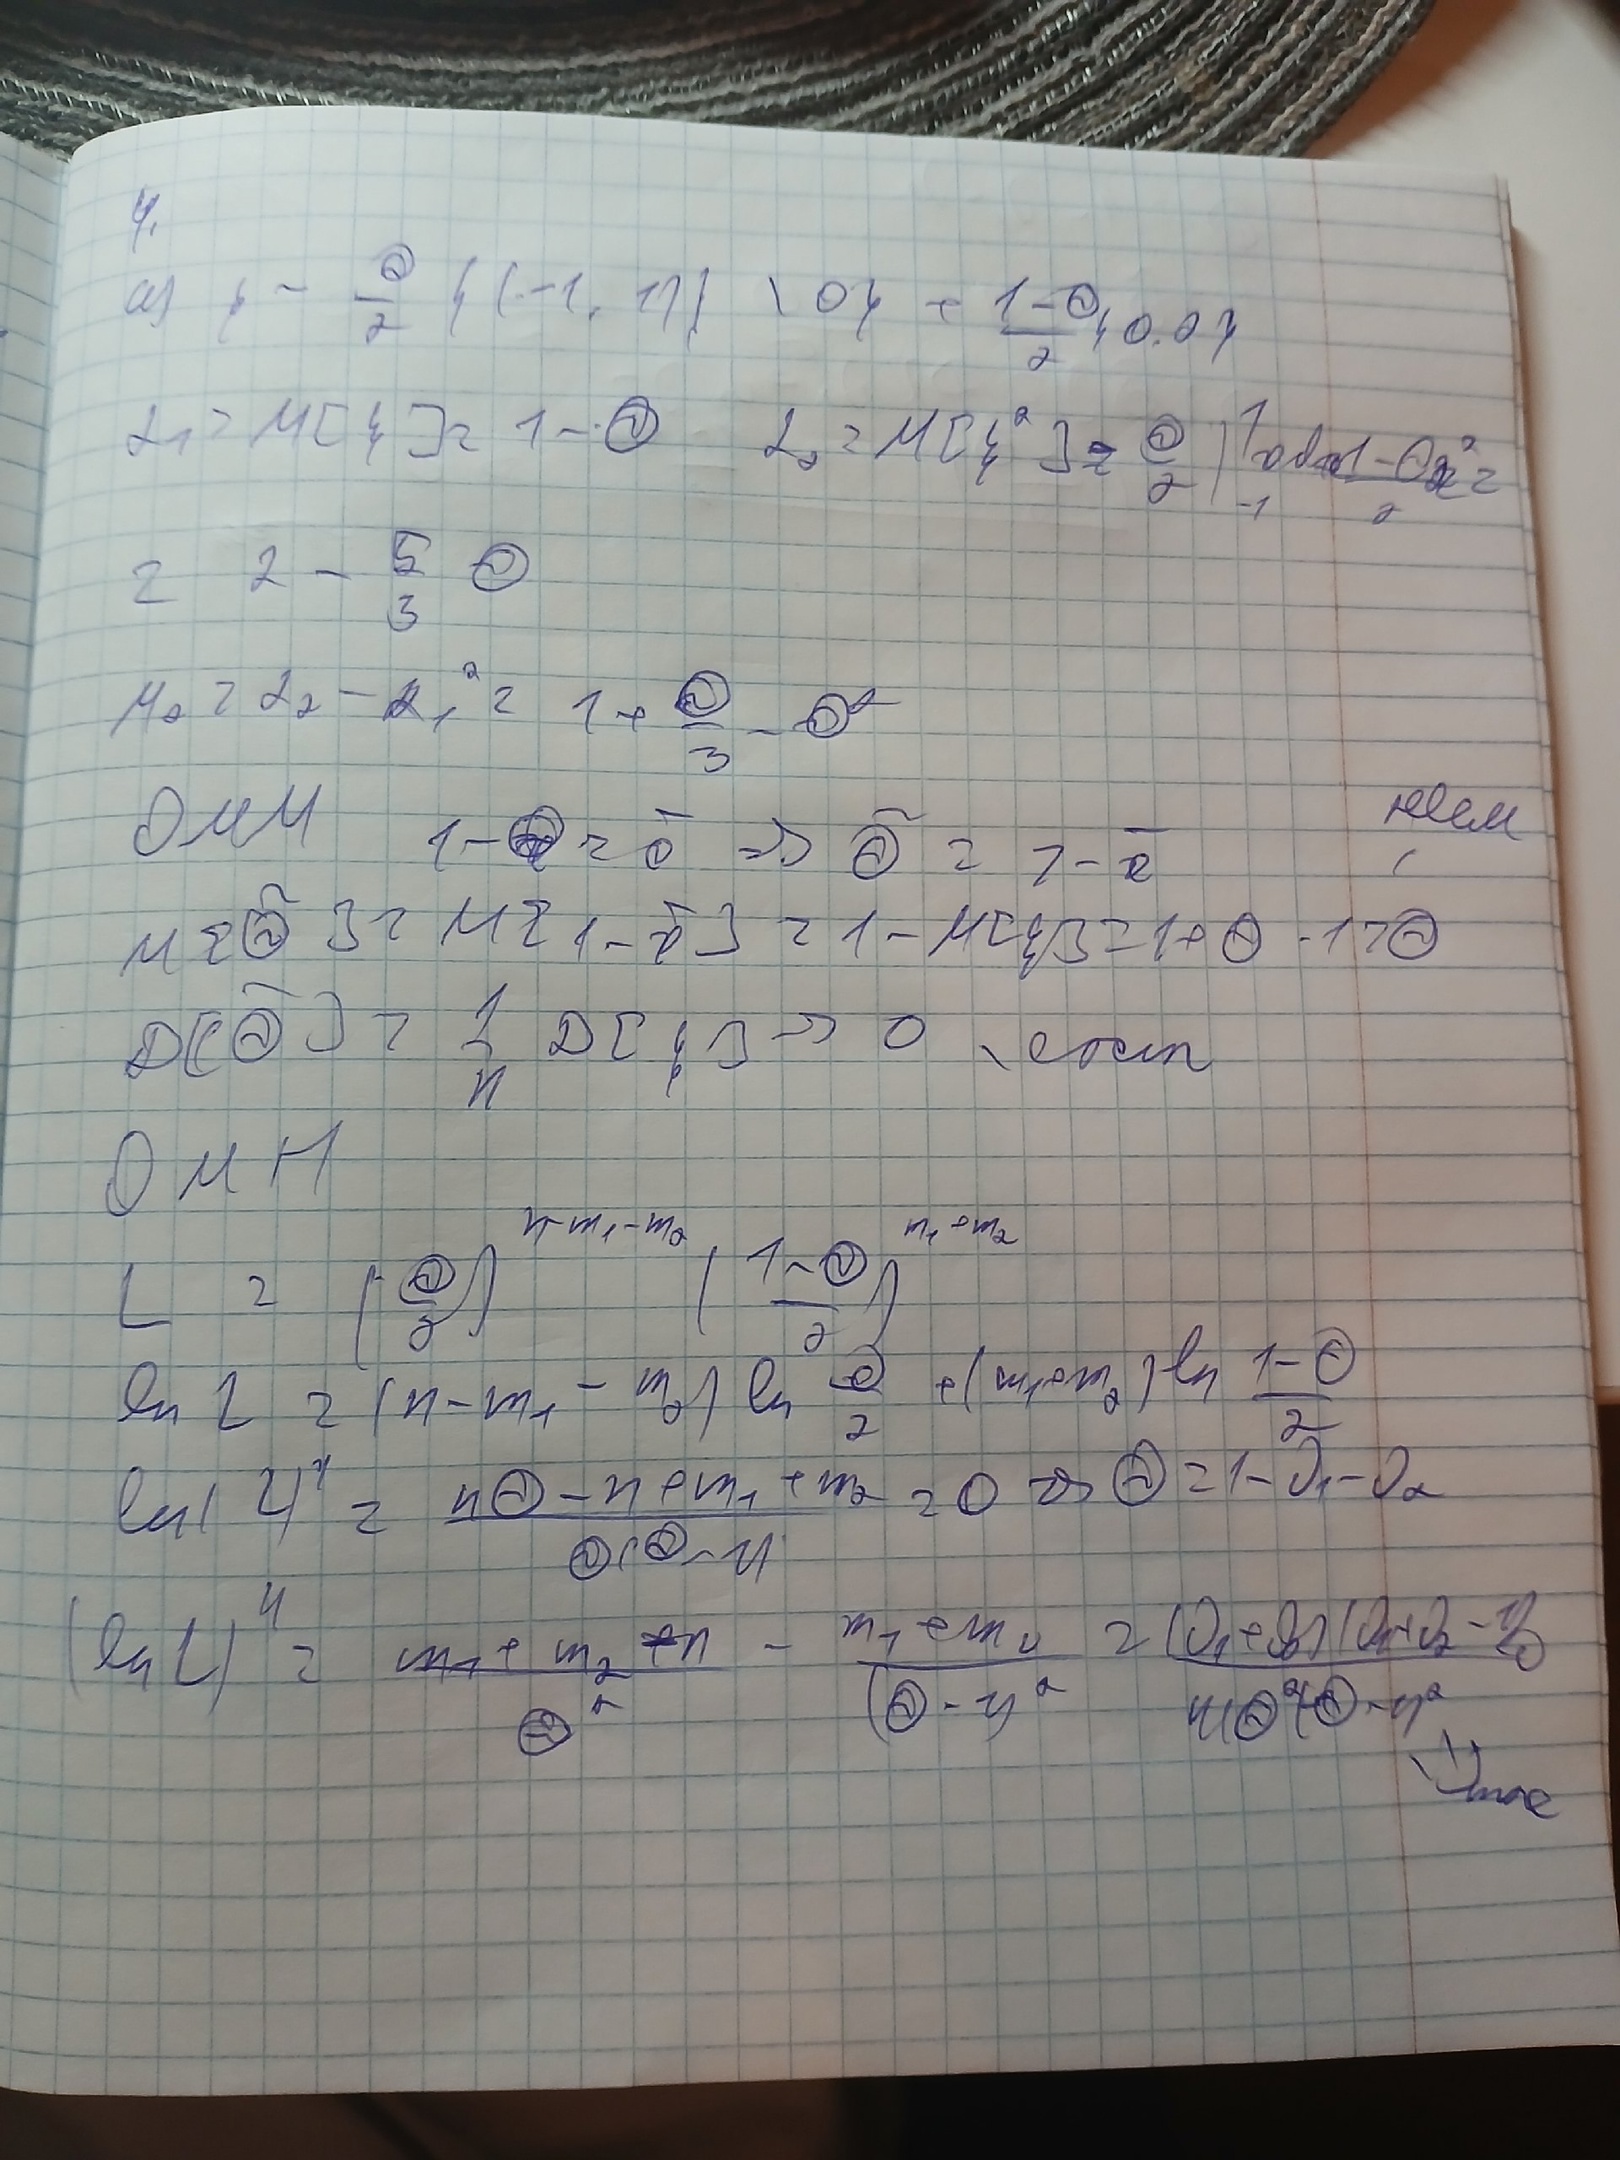 4.
a) ξ ~ θ/2 {(-1, 1)} \ 0} + (1-θ)/2 {0.2}
α₁ = M[ξ] = 1-θ α₂ = M[ξ²] = θ/2 ∫₋₁¹
= 2 - 5/3 θ
μ₂ = α₂ - α₁² = 1 + θ/3 - θ²
ОММ 1-θ = x̄ => θ̃ = 1-x̄
M[θ̃] = M[1-x̄] = 1 - M[ξ] = 1+θ-1 = θ
D[θ̃] = 1/n D[ξ] -> 0, сост
ОМП
L = (θ/2)^(n-m₁-m₂) ((1-θ)/2)^(m₁+m₂)
ln L = (n-m₁-m₂) ln θ/2 + (m₁+m₂) ln (1-θ)/2
ln(L)' = (nθ-n+m₁+m₂)/(θ(θ-1)) = 0 => θ = 1-ν₁-ν₂
(ln L)'' = (m₁+m₂-n)/θ² - (m₁+m₂)/(θ-1)² =